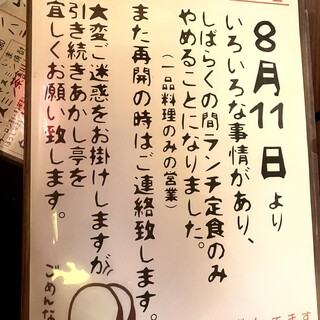 8月11日より
いろいろな事情があり、
しばらくの間ランチ定食のみ
やめることになりました。
(一品料理のみの営業)
また再開の時はご連絡致します。
大変ご迷惑をお掛けしますが
引き続きあかし亭を
宜しくお願い致します。
ごめんな